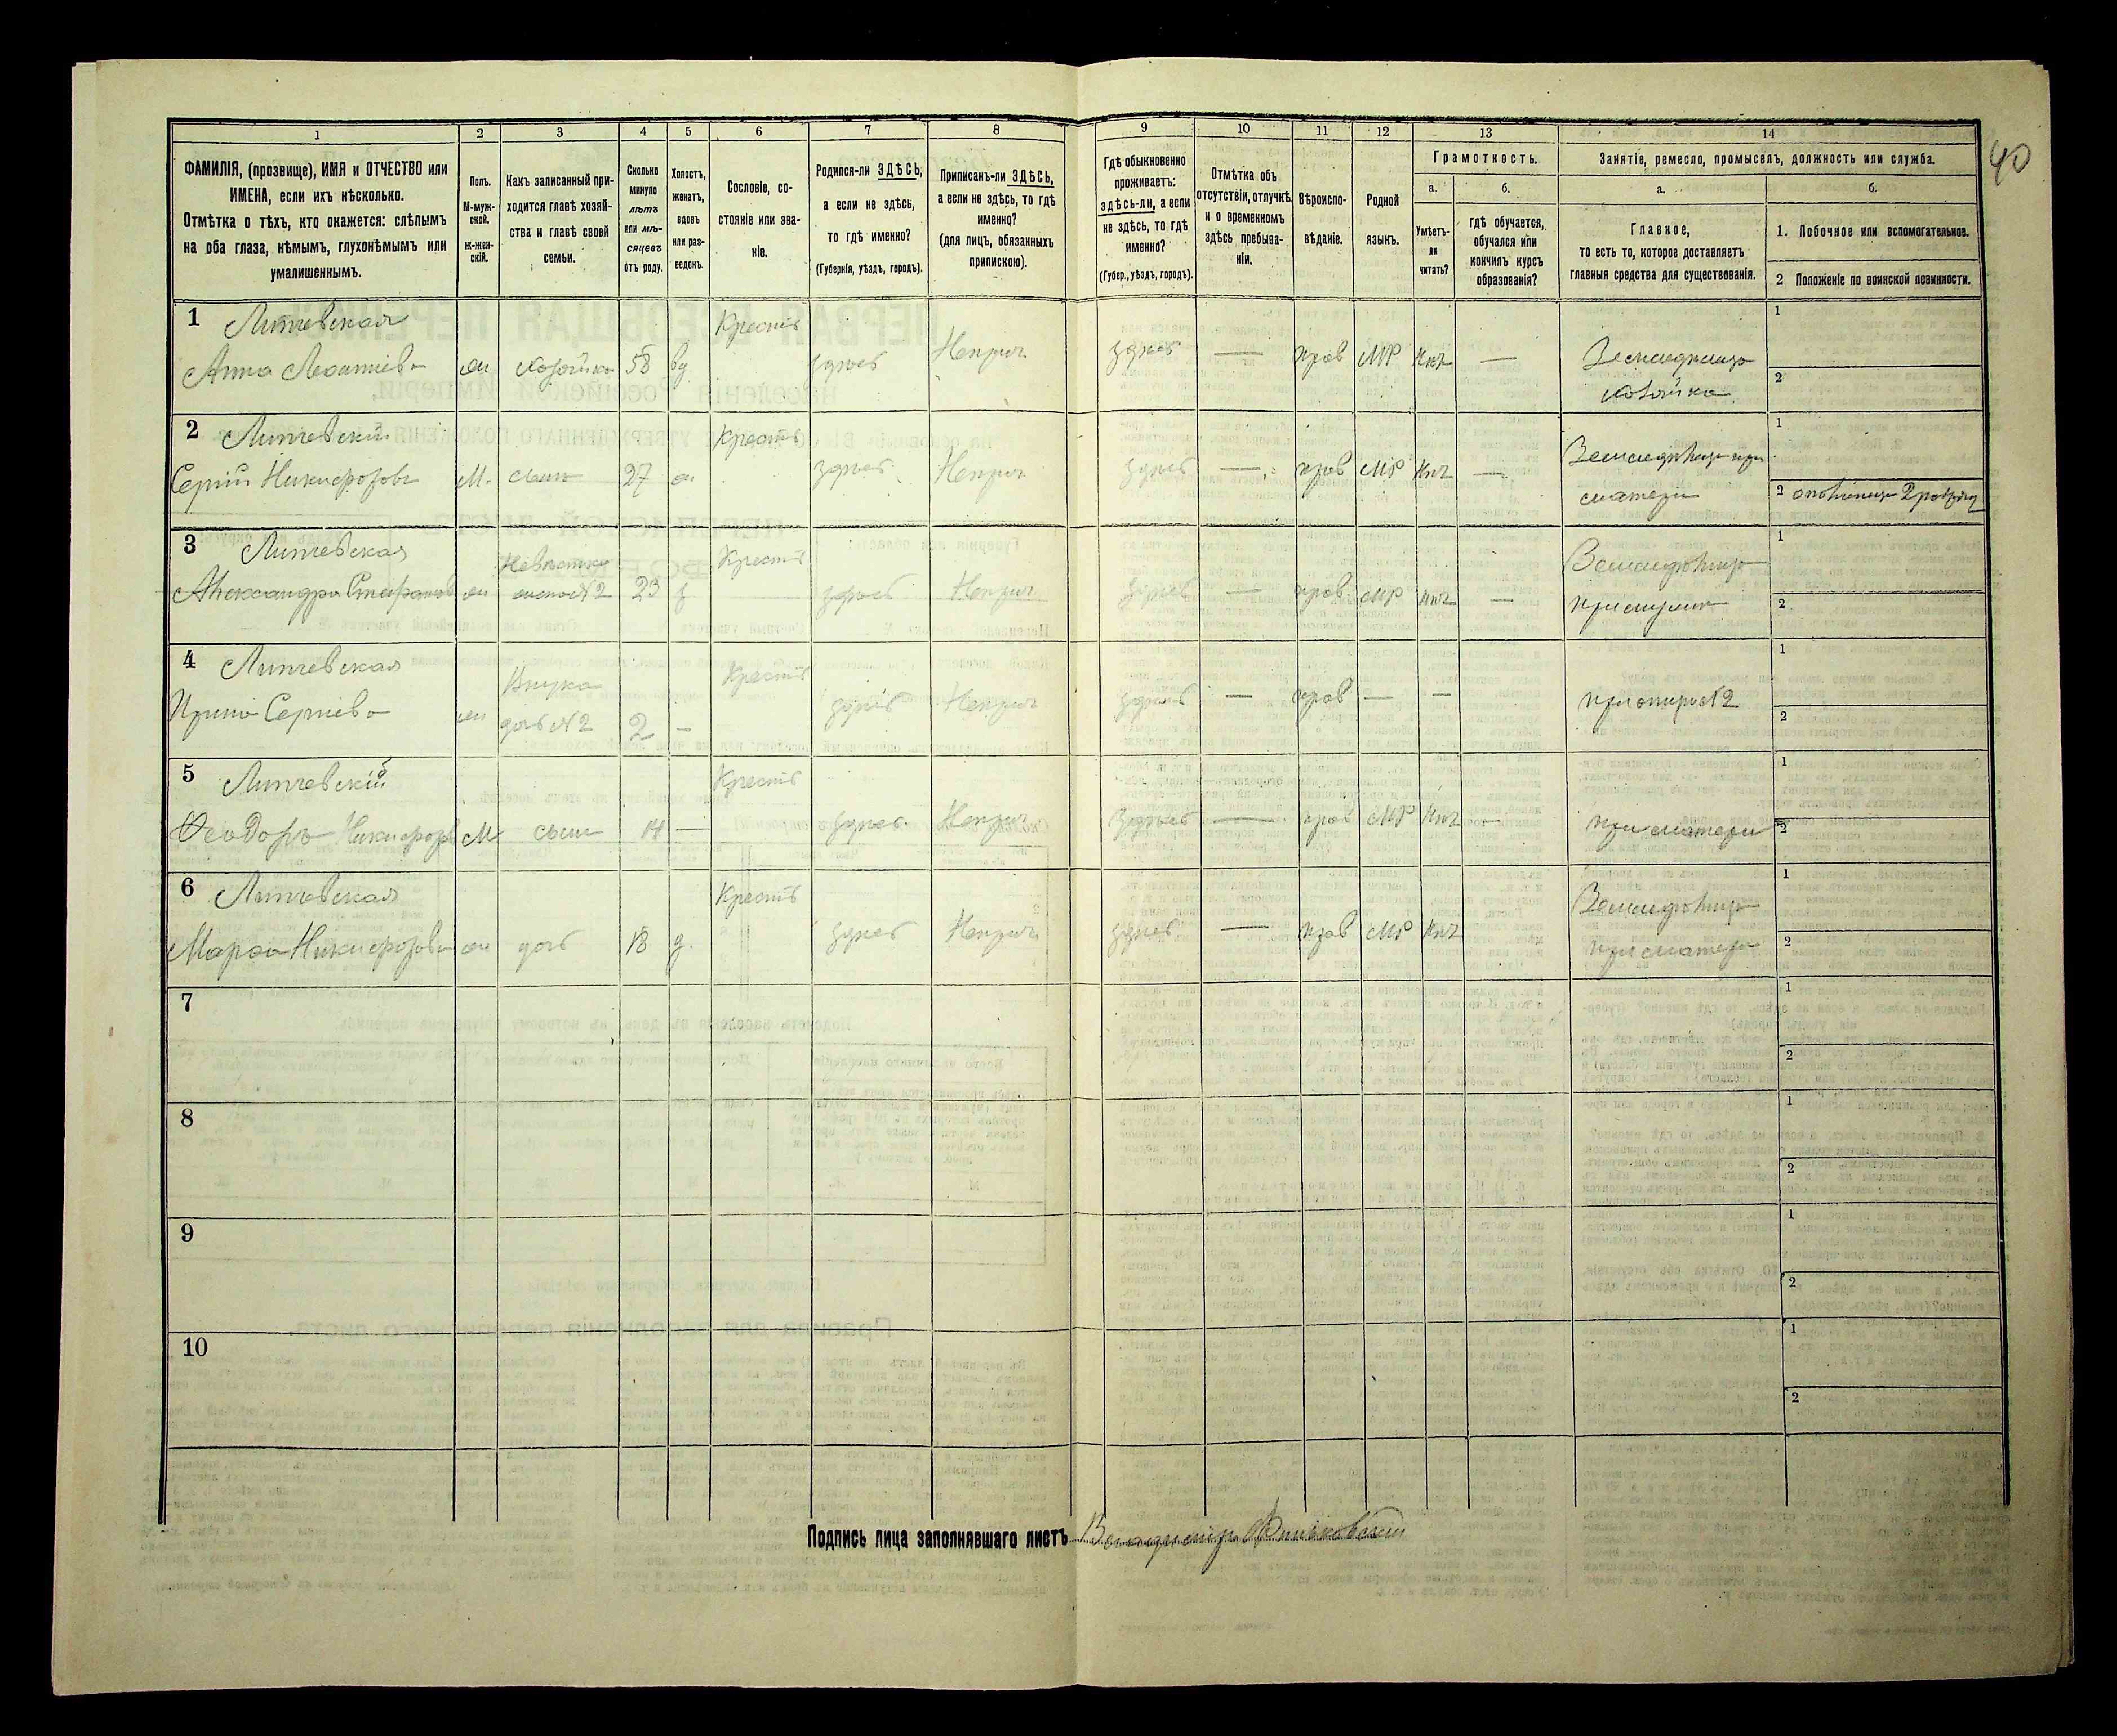 40
1 2 3 4 5 6 7 8 9 10 11 12 13 14
ФАМИЛІЯ, (прозвище), ИМЯ и ОТЧЕСТВО или
ИМЕНА, если ихъ нѣсколько.
Отмѣтка о тѣхъ, кто окажется: слѣпымъ
на оба глаза, нѣмымъ, глухонѣмымъ или
умалишеннымъ.
Полъ.
М-муж-
ской.
ж-жен-
скій.
Какъ записанный при-
ходится главѣ хозяй-
ства и главѣ своей
семьи.
Сколько
минуло
лѣтъ
или мѣ-
сяцевъ
отъ роду.
Холостъ,
женатъ,
вдовъ
или раз-
веденъ.
Сословіе, со-
стояніе или зва-
ніе.
Родился-ли ЗДѢСЬ,
а если не здѣсь,
то гдѣ именно?
(Губернія, уѣздъ, городъ).
Приписанъ-ли ЗДѢСЬ,
а если не здѣсь, то гдѣ
именно?
(для лицъ, обязанныхъ
припискою).
Гдѣ обыкновенно
проживаетъ:
здѣсь-ли, а если
не здѣсь, то гдѣ
именно?
(Губер., уѣздъ, городъ).
Отмѣтка объ
отсутствіи, отлучкѣ
и о временномъ
здѣсь пребыва-
ніи.
Вѣроиспо-
вѣданіе.
Родной
языкъ.
Грамотность.
а.
Умѣетъ-
ли
читать?
б.
гдѣ обучается,
обучался или
кончилъ курсъ
образованія?
Занятіе, ремесло, промыселъ, должность или служба.
а.
Главное,
то есть то, которое доставляетъ
главныя средства для существованія.
б.
1. Побочное или вспомогательное.
2 Положеніе по воинской повинности.
1 Липчевская Кресть 1
Анна Леонтіева жн хозяйка 58 вд здѣсь Неприч здѣсь — прав МР Нѣт — Земледѣлица
хозяйка 2
2 Липчевскій Кресть 1
Сергій Никифоровъ М. сынъ 27 ж здѣсь Неприч здѣсь — прав МР Нѣт — Земледѣлецъ при
матери 2 ополченецъ 2 разряд
3 Липчевская Невѣстка Кресть 1
Александра Стефанов жн жена №2 23 з здѣсь Неприч здѣсь — прав. МР Нѣт — Земледѣлица
при мужѣ 2
4 Липчевская Внука Кресть 1
Ирина Сергіева жн дочь №2 2 — здѣсь Неприч здѣсь — прав — — при отцѣ №2 2
5 Липчевскій Кресть 1
Ѳеодоръ Никифоровъ М сынъ 14 — здѣсь Неприч здѣсь — прав МР Нѣт — при матери 2
6 Липчевская Кресть 1
Марѳа Никифорова жн дочь 18 д. здѣсь Неприч здѣсь — прав МР Нѣт Земледѣлица
при матери 2
7 1
2
8 1
2
9 1
2
10 1
2
Подпись лица заполнявшаго листъ Владимир